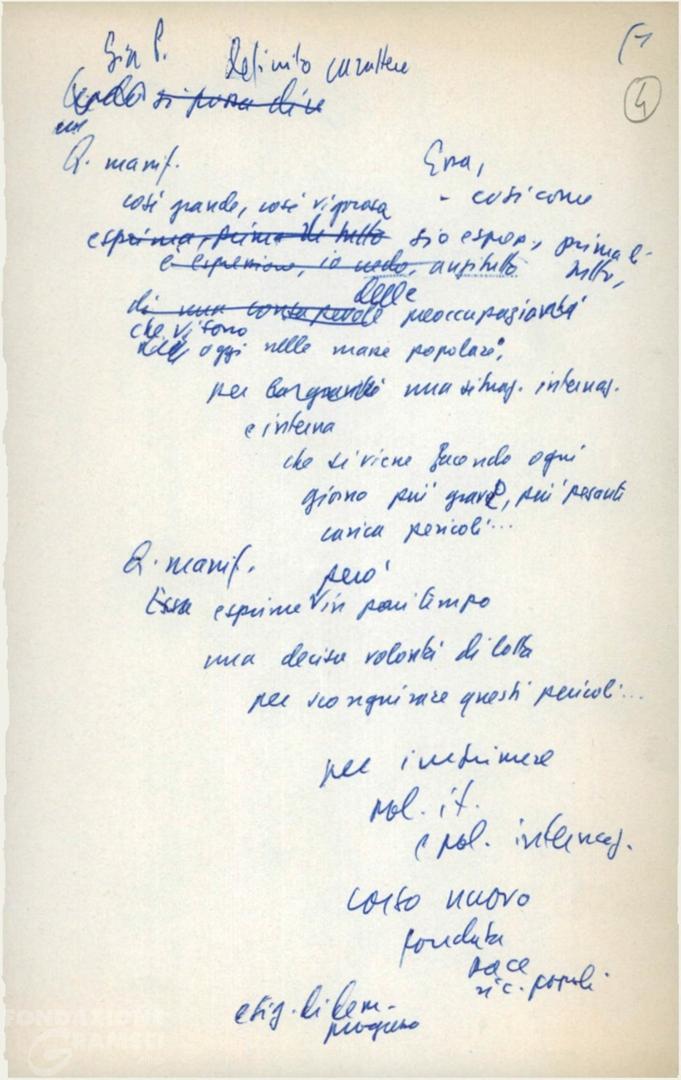 Gia P. Definito carattere
Credo si possa dire
④
Q. manif. Essa,
così grande, così vigorosa - così come
esprima, prima di tutto sia espres., prima di tutto,
è espressione, io credo, anzitutto
di una consapevole delle preoccupazioni
che vi sono
oggi nelle masse popolari,
per una situaz. internaz.
e interna
che si viene facendo ogni
giorno più grave, più pesanti
carica pericoli...
Q. manif. però
Essa esprime in pari tempo
una decisa volontà di lotta
per scongiurare questi pericoli...
per imprimere
pol. it.
e pol. internaz.
corso nuovo
fondata
pace
sic. popoli
esig. di dem.
progresso
FONDAZIONE
GRAMSCI